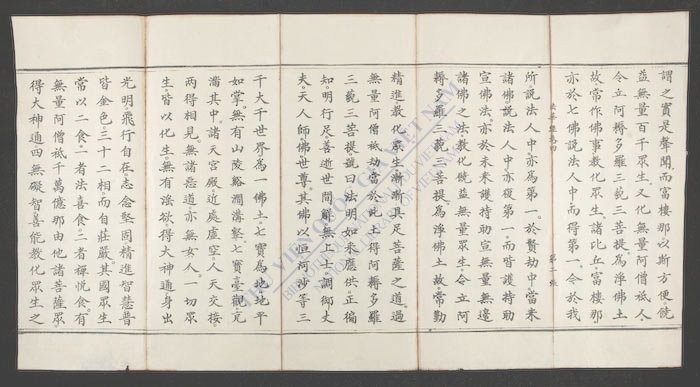 謂之實是聲聞。而富樓那以斯方便饒
益無量百千眾生。又化無量阿僧祇人。
令立阿耨多羅三藐三菩提。為淨佛土
故。常作佛事教化眾生。諸比丘。富樓那
亦於七佛說法人中而得第一。今於我
法華經卷四 第二張
所說法人中亦為第一。於賢劫中。當來
諸佛。說法人中亦復第一。而皆護持助
宣佛法。亦於未來護持助宣無量無邊
諸佛之法。教化饒益無量眾生。令立阿
耨多羅三藐三菩提。為淨佛土故。常勤
精進教化眾生。漸漸具足菩薩之道。過
無量阿僧祇劫。當於此土得阿耨多羅
三藐三菩提。號曰法明如來。應供。正徧
知。明行足。善逝。世間解。無上士。調御丈
夫。天人師。佛。世尊。其佛以恒河沙等三
千大千世界為一佛土。七寶為地。地平
如掌。無有山陵谿澗溝壑。七寶臺觀充
滿其中。諸天宮殿近處虛空。人天交接。
兩得相見。無諸惡道。亦無女人。一切眾
生皆以化生。無有淫欲。得大神通。身出
光明。飛行自在。志念堅固。精進智慧。普
皆金色。三十二相。而自莊嚴。其國眾生。
常以二食。一者法喜食。二者禪悅食。有
無量阿僧祇千萬億那由他諸菩薩眾。
得大神通。四無礙智。善能教化眾生之
THƯ VIỆN QUỐC GIA VIỆT NAM
BIBLIOTHÈQUE NATIONALE DU VIETNAM
NATIONAL LIBRARY OF VIETNAM